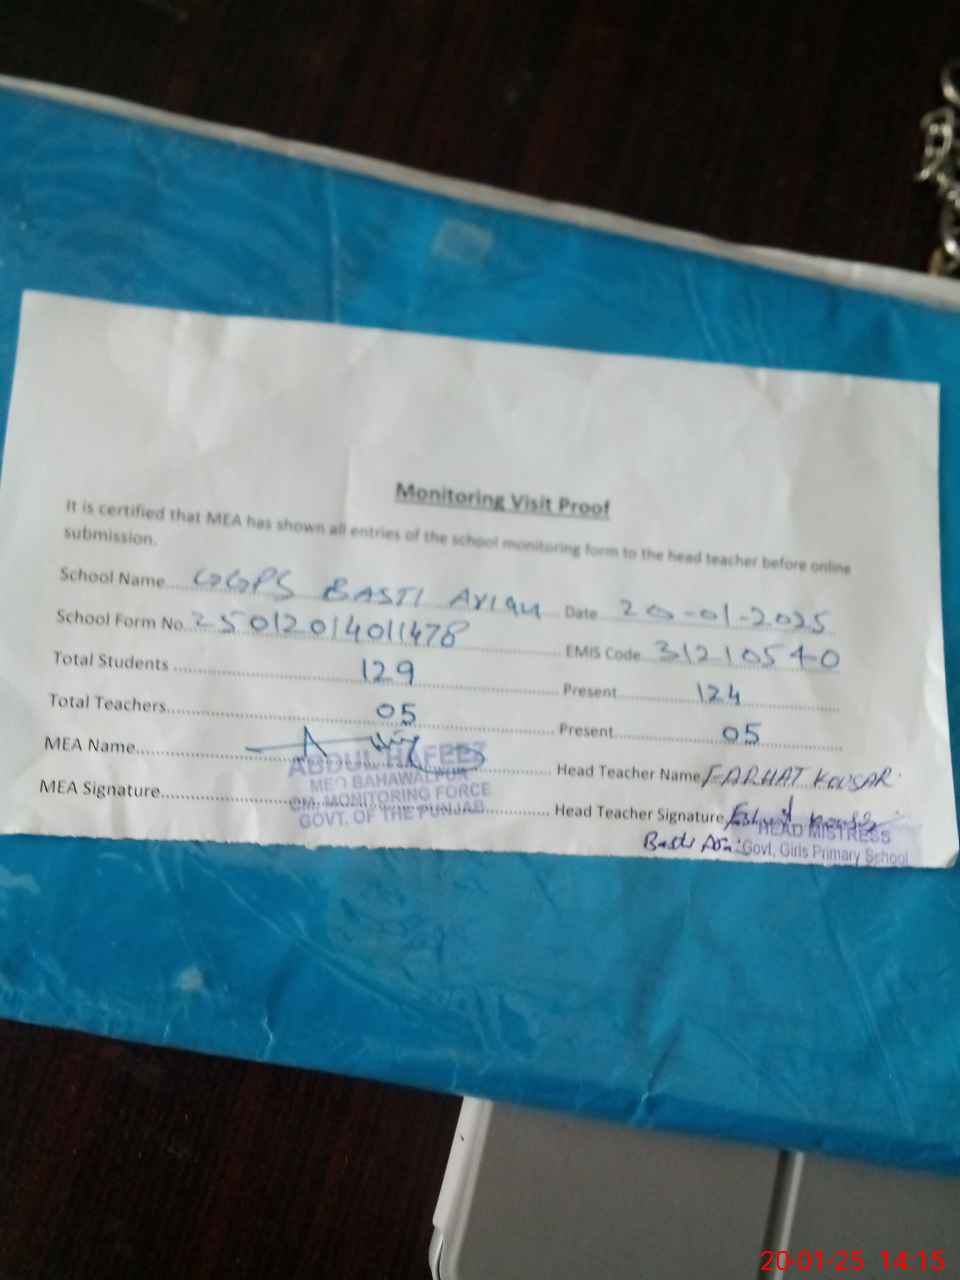 Monitoring Visit Proof
It is certified that MEA has shown all entries of the school monitoring form to the head teacher before online
submission.
School Name GGPS BASTI Date 20-01-2025
School Form No. 25012014011478 EMIS Code 31210540
Total Students 129 Present 124
Total Teachers 05 Present 05
MEA Name ABDUL HAFEEZ Head Teacher Name FARHAT KOUSAR
MEO BAHAWALPUR
MEA Signature CM. MONITORING FORCE Head Teacher Signature
GOVT. OF THE PUNJAB
HEAD MISTRESS
Basti Govt, Girls Primary School
20-01-25 14:15